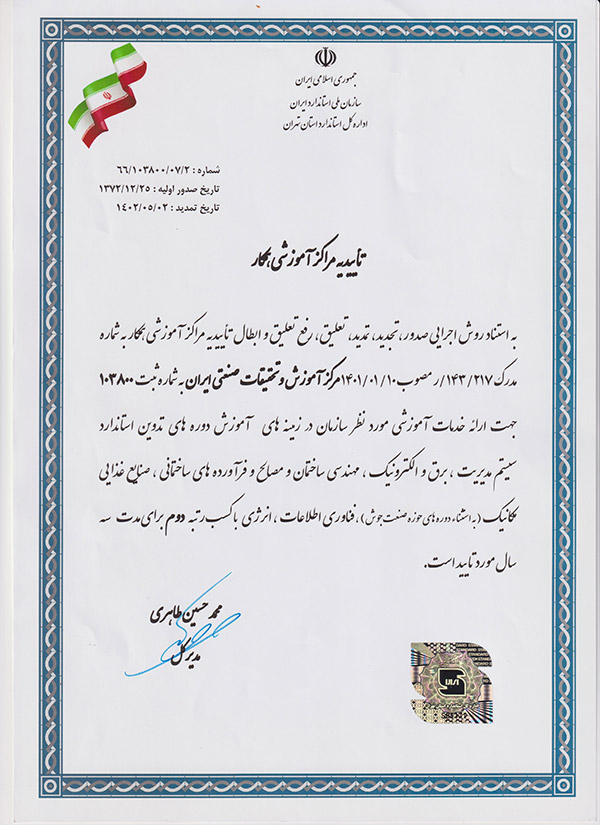 جمهوری اسلامی ایران
سازمان ملی استاندارد ایران
اداره کل استاندارد استان تهران
شماره : ۶۶/۱۰۳۸۰۰/۰۷/۲
تاریخ صدور اولیه : ۱۳۷۲/۱۲/۲۵
تاریخ تمدید : ۱۴۰۲/۰۵/۰۲
تأییدیه مراکز آموزشی همکار
به استناد روش اجرایی صدور، تجدید، تمدید، تعلیق، رفع تعلیق و ابطال تأییدیه مراکز آموزشی همکار به شماره
مدرک ۱۴۳/۲۱۷/ر مصوب ۱۴۰۱/۰۱/۱۰ مرکز آموزش و تحقیقات صنعتی ایران به شماره ثبت ۱۰۳۸۰۰
جهت ارائه خدمات آموزشی مورد نظر سازمان در زمینه های آموزش دوره های تدوین استاندارد
سیستم مدیریت ، برق و الکترونیک ، مهندسی ساختمان و مصالح و فرآورده های ساختمانی ، صنایع غذایی
مکانیک (به استثناء دوره های حوزه صنعت جوش) ، فناوری اطلاعات ، انرژی با کسب رتبه دوم برای مدت سه
سال مورد تایید است.
محمد حسین طاهری
مدیر کل